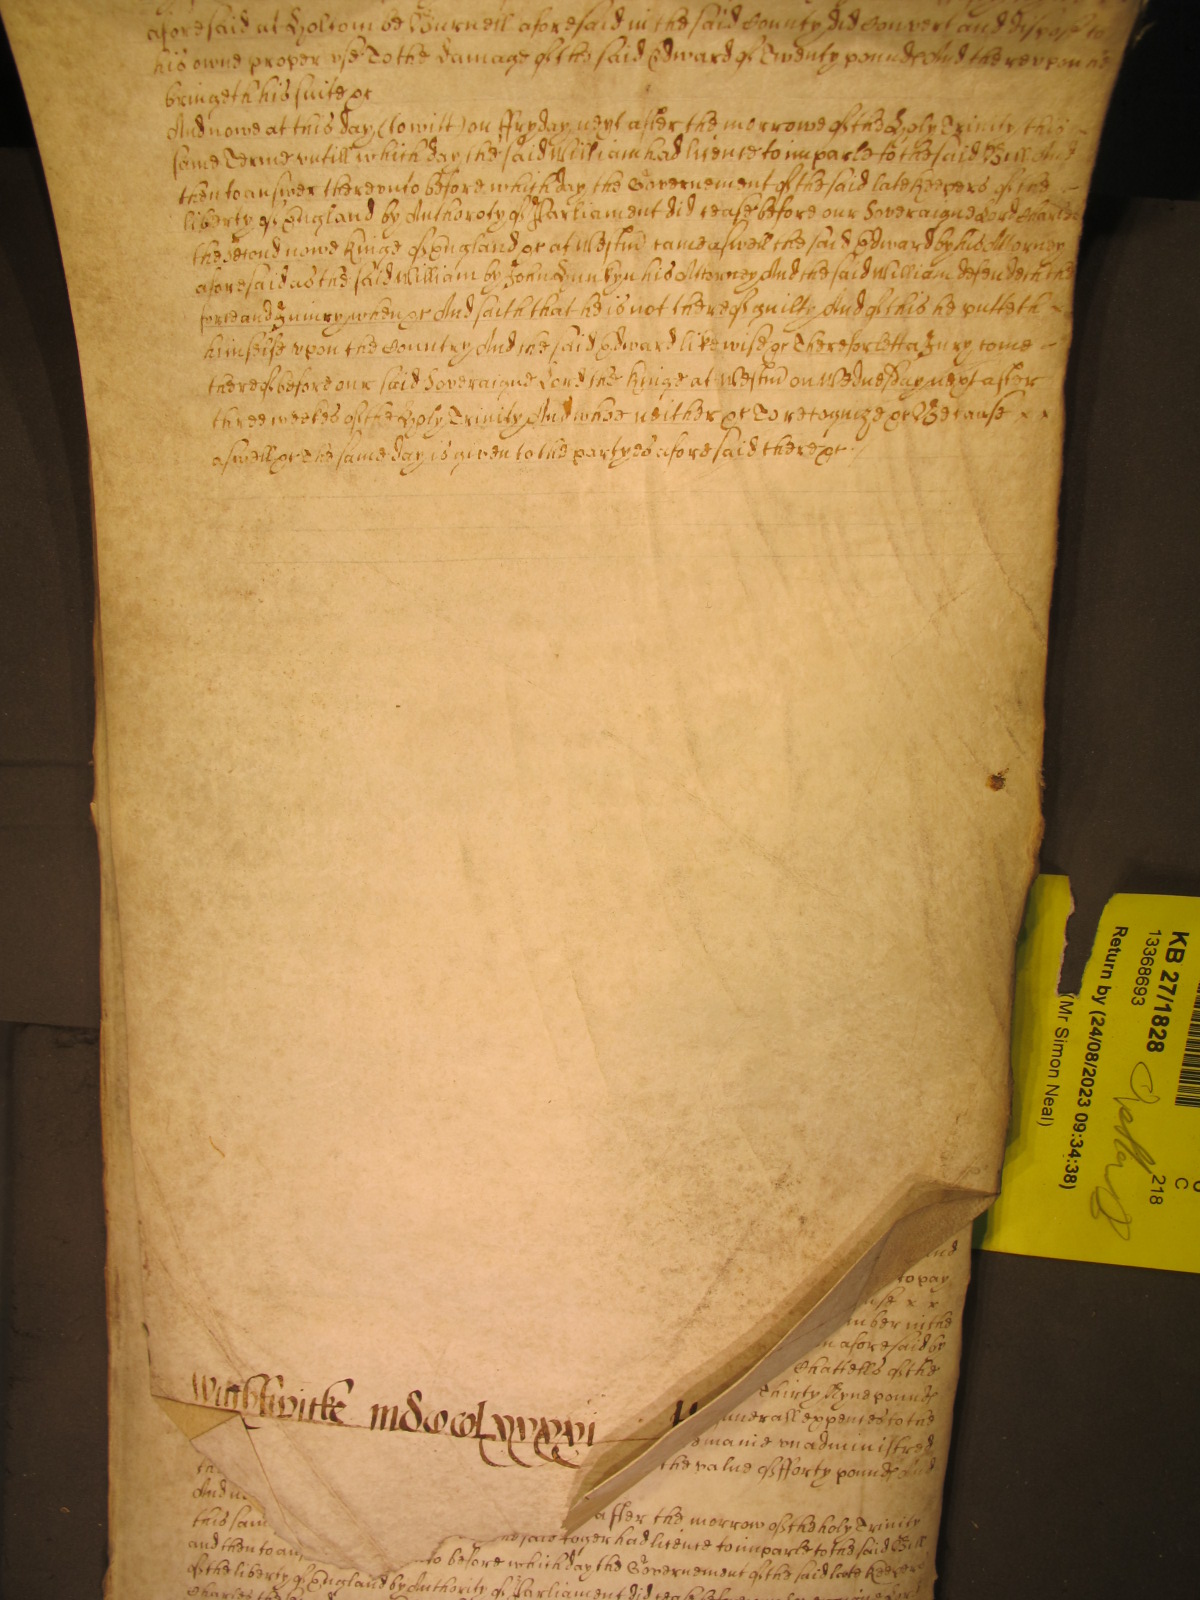 aforesaid at Holtom be Burnell aforesaid in the said County did Convert and dispose to
his owne proper vse To the damage of the said Edward of Twenty pounds And therevpon he
bringeth his suite &c
And nowe at this day (to witt) on ffryday next after the morrowe of the Holy Trinity this
same Terme vntill which day the said William had licence to imparle to the said Bill And
then to answer therevnto before which day the Governement of the said late Keepers of the
liberty of England by Authoroty of Parliament did cease before our Soveraigne Lord Charles
the Second nowe Kinge of England &c at Westm came aswell the said Edward by his Attorney
aforesaid as the said William by John his Attorney And the said William defendeth the
force and Iniury when &c And saith that he is not thereof guilty And of this he putteth
himselfe vpon the Country And the said Edward likewise &c Therefor lett a Iury come
thereof before our said Soveraigne Lord the Kinge at Westm on Wednesday next after
three weekes of the Holy Trinity And whoe neither &c To recognize &c Because x x
aswell &c The same day is given to the partyes aforesaid there &c
And
to pay
x x
mber in the
aforesaid by
Chattells of the
Thirty Nyne pounds
funerall expences to the
vnadministred
the value of fforty pounds And
Wightwicke mdccclxxxxvi
And n
this sam after the morrow of the holy Trinity
and then to an Roger had licence to imparle to the said Bill
to before which day the Governement of the said late Keepers
of the liberty of England by Authority of Parliament did cease before
Charles the
KB 27/1828
13368693
Return by (24/08/2023 09:34:38)
(Mr Simon Neal)
218
C